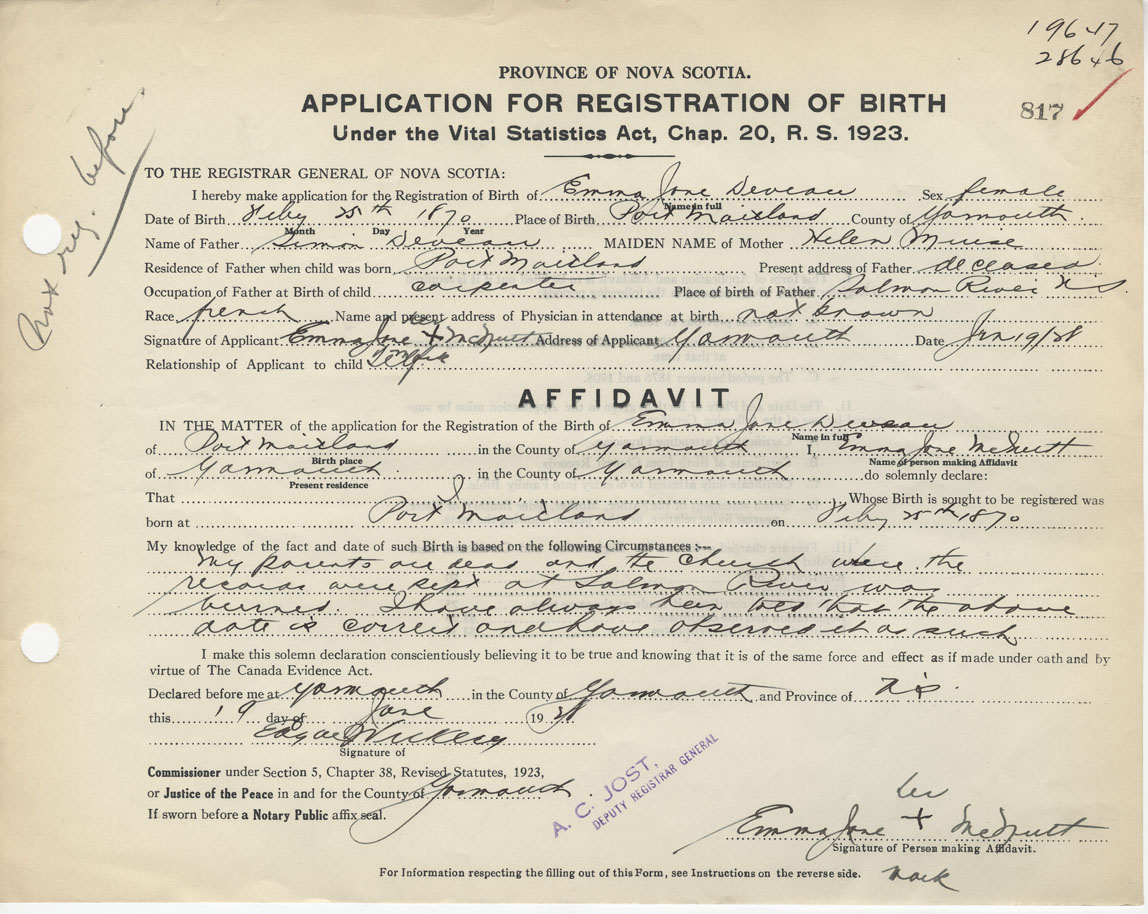 19647
28646
817
Not reg. before.
PROVINCE OF NOVA SCOTIA.
APPLICATION FOR REGISTRATION OF BIRTH
Under the Vital Statistics Act, Chap. 20, R. S. 1923.
TO THE REGISTRAR GENERAL OF NOVA SCOTIA:
I hereby make application for the Registration of Birth of Emma Jane Deveau Sex female
Name in full
Date of Birth Feby 25th 1870 Place of Birth Port Maitland County of Yarmouth
Month Day Year
Name of Father Simon Deveau MAIDEN NAME of Mother Helen Muise
Residence of Father when child was born Port Maitland Present address of Father deceased
Occupation of Father at Birth of child carpenter Place of birth of Father Salmon River N S
Race french Name and present address of Physician in attendance at birth not known
Signature of Applicant Emma Jane her + McNutt Address of Applicant Yarmouth Date
Relationship of Applicant to child Self mark
AFFIDAVIT
IN THE MATTER of the application for the Registration of the Birth of Emma Jane Deveau
Name in full
of Port Maitland in the County of Yarmouth I, Emma Jane McNutt
Birth place Name of person making Affidavit
of Yarmouth in the County of Yarmouth do solemnly declare:
Present residence
That I Whose Birth is sought to be registered was
born at Port Maitland on Feby 25th 1870
My knowledge of the fact and date of such Birth is based on the following Circumstances :--
My parents are dead and the church where the
records were kept at Salmon River was
burned. I have always been told that the above
date is correct and have observed it as such
I make this solemn declaration conscientiously believing it to be true and knowing that it is of the same force and effect as if made under oath and by
virtue of The Canada Evidence Act.
Declared before me at Yarmouth in the County of Yarmouth and Province of N.S.
this 19 day of 19
Edgar Vickery
Signature of
Commissioner under Section 5, Chapter 38, Revised Statutes, 1923,
or Justice of the Peace in and for the County of Yarmouth
If sworn before a Notary Public affix seal.
A. C. JOST,
DEPUTY REGISTRAR GENERAL
her
Emma Jane + McNutt
Signature of Person making Affidavit.
mark
For Information respecting the filling out of this Form, see Instructions on the reverse side.